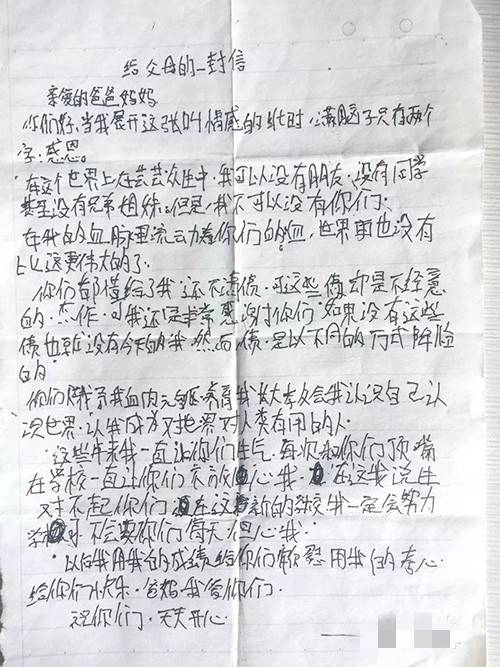 给父母的一封信
亲爱的爸爸妈妈
你们好,当我展开这张叫情感的纸时,满脑子只有两个
字:感恩。
在这个世界上在芸芸众生中,我可以没有朋友,没有同学
甚至没有兄弟姐妹,但是,我不可以没有你们.
在我的血脉里流动着你们的血,世界再也没有
比这更伟大的了.
你们都借给了我还不清债.可这些债却是不经意
的.杰作.可我还是我常想没付你们如果没有这些
债也就没有今天的我.然而债.是以不同的方式降临
的
你们赐予我血肉之躯.养育我长大教会我认识自己认
识世界.让我成为对世界对人类有用的人.
这些年来我一直让你们生气.每次和你们顶嘴
在学校一直让你们不放心我.在这我说生
对不起你们.在这新的学校我一定会努力
学习不会要你们每天担心我.
以后我用我的成绩给你们安慰用我的孝心
给你们快乐.爸妈我爱你们.
祝你们.天天开心